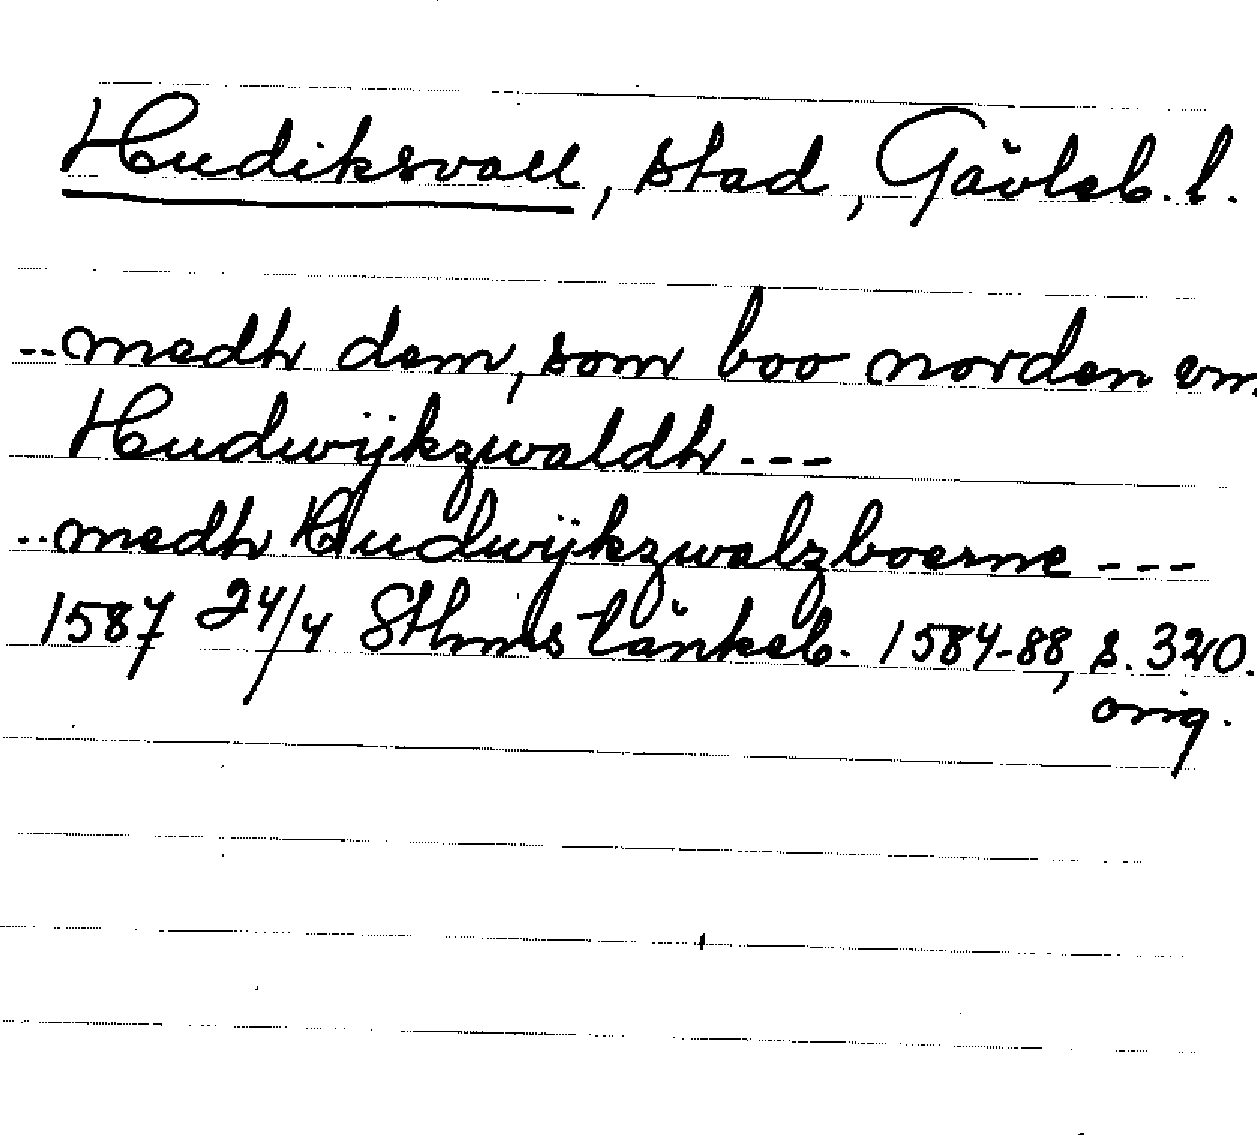 Hudiksvall, stad, Gävleb. l.
-- medh dem, som boo norden vm
Hudwijkzwaldh ---
-- medh Hudwijkzwalzboerne ---
1587 24/4 Sthms tänkeb. 1584-88, s. 320.
orig.